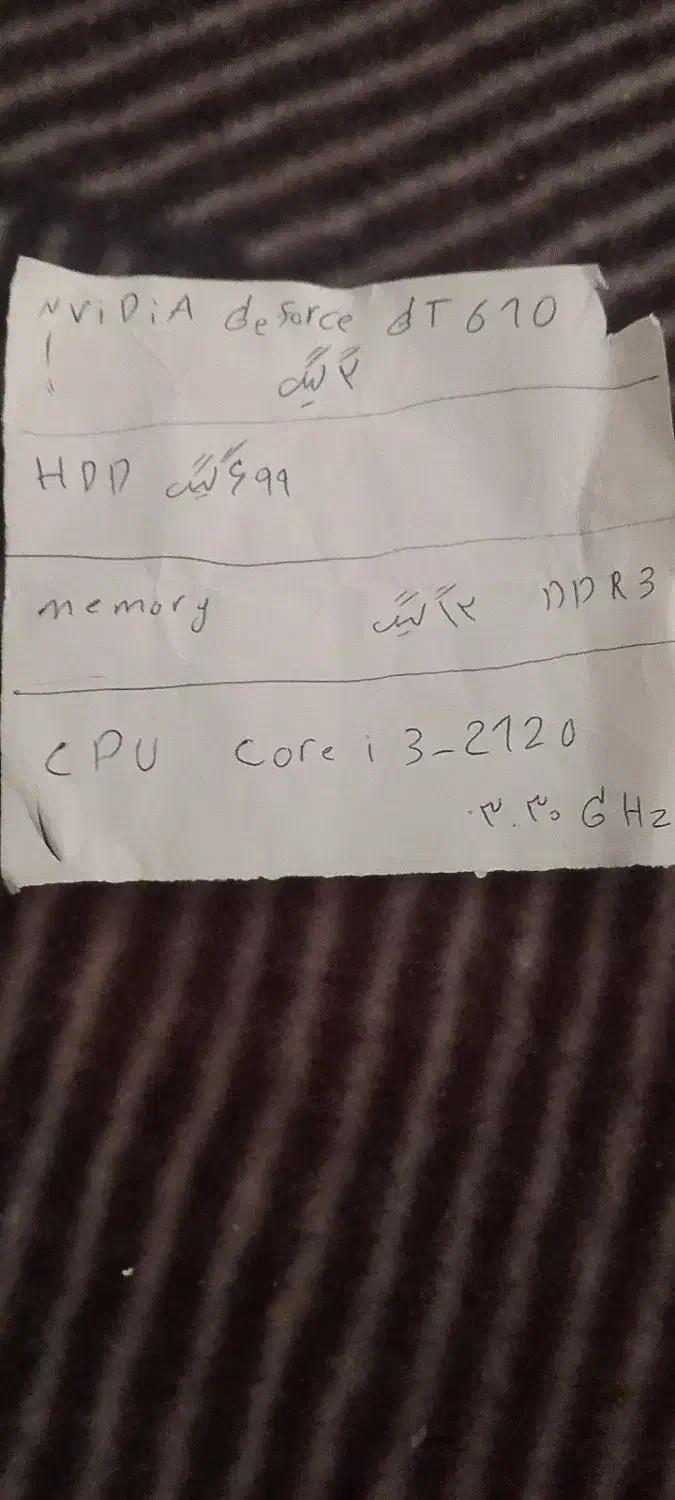 NViDiA GeForce GT 610
۲ گیگ
HDD ۶۹۹ گیگ
memory ۱۲ گیگ DDR3
CPU Core i 3-2120
۳.۳۰ GHz